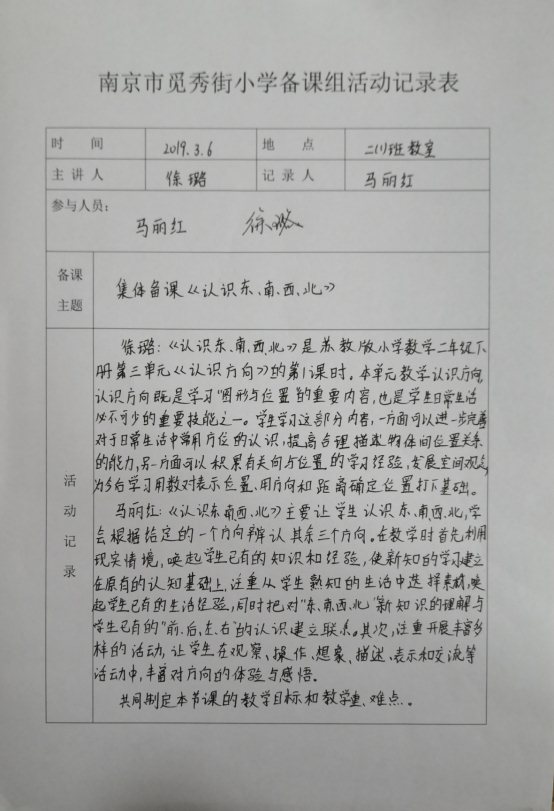 南京市觅秀街小学备课组活动记录表
时 间 2019.3.6 地 点 二(1)班教室
主讲人 徐璐 记录人 马丽红
参与人员:
马丽红 徐璐
备课
主题
集体备课《认识东、南、西、北》
活动记录
徐璐:《认识东、南、西、北》是苏教版小学数学二年级下
册第三单元《认识方向》的第1课时。本单元教学认识方向,
认识方向既是学习"图形与位置"的重要内容,也是学生日常生活
必不可少的重要技能之一。学生学习这部分内容,一方面可以进一步完善
对于日常生活中常用方位的认识,提高合理描述物体间位置关系
的能力,另一方面可以积累有关向与位置的学习经验,发展空间观念,
为今后学习用数对表示位置、用方向和距离确定位置打下基础。
马丽红:《认识东南西北》主要让学生认识东、南、西、北,学
会根据给定的一个方向辨认其余三个方向。在教学时首先利用
现实情境,唤起学生已有的知识和经验,使新知的学习建立
在原有的认知基础上,注重从学生熟知的生活中选择素材,唤
起学生已有的生活经验,同时把对"东、南、西、北"新知识的理解与
学生已有的"前、后、左、右"的认识建立联系。其次,注重开展丰富多
样的活动,让学生在观察、操作、想象、描述、表示和交流等
活动中,丰富对方向的体验与感悟。
共同制定本节课的教学目标和教学重、难点。